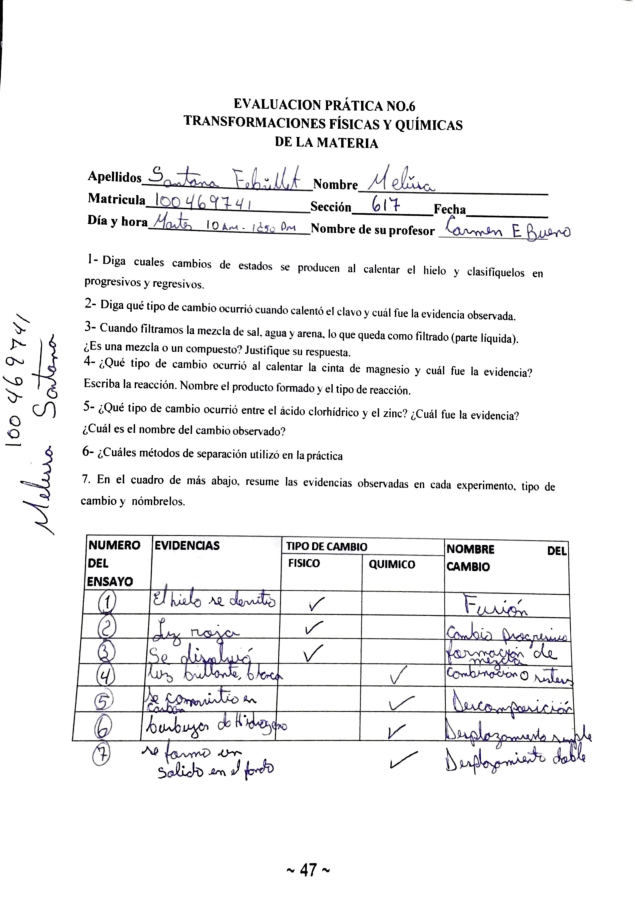 EVALUACION PRÁTICA NO.6
TRANSFORMACIONES FÍSICAS Y QUÍMICAS
DE LA MATERIA
Apellidos Santana Febrillet Nombre Melissa
Matricula 100469741 Sección 617 Fecha
Día y hora Martes 10 AM - 12:50 PM Nombre de su profesor Carmen E Bueno
1- Diga cuales cambios de estados se producen al calentar el hielo y clasifíquelos en
progresivos y regresivos.
2- Diga qué tipo de cambio ocurrió cuando calentó el clavo y cuál fue la evidencia observada.
3- Cuando filtramos la mezcla de sal, agua y arena, lo que queda como filtrado (parte líquida).
¿Es una mezcla o un compuesto? Justifique su respuesta.
4- ¿Qué tipo de cambio ocurrió al calentar la cinta de magnesio y cuál fue la evidencia?
Escriba la reacción. Nombre el producto formado y el tipo de reacción.
5- ¿Qué tipo de cambio ocurrió entre el ácido clorhídrico y el zinc? ¿Cuál fue la evidencia?
¿Cuál es el nombre del cambio observado?
6- ¿Cuáles métodos de separación utilizó en la práctica
7. En el cuadro de más abajo, resume las evidencias observadas en cada experimento, tipo de
cambio y nómbrelos.
100469741
Melissa Santana
NUMERO DEL ENSAYO EVIDENCIAS TIPO DE CAMBIO NOMBRE DEL CAMBIO
FISICO QUIMICO
1 El hielo se derritio ✓ Fusión
2 Luz roja ✓ Cambio progresivo
3 Se disolvió ✓ formación de mezcla
4 luz brillante, blanca ✓ Combinacion o sintesis
5 se convirtio en carbón ✓ Descomposición
6 burbujas de Hidrogeno ✓ Desplazamiento simple
7 se formo un salido en el fondo ✓ Desplazamiento doble
~ 47 ~